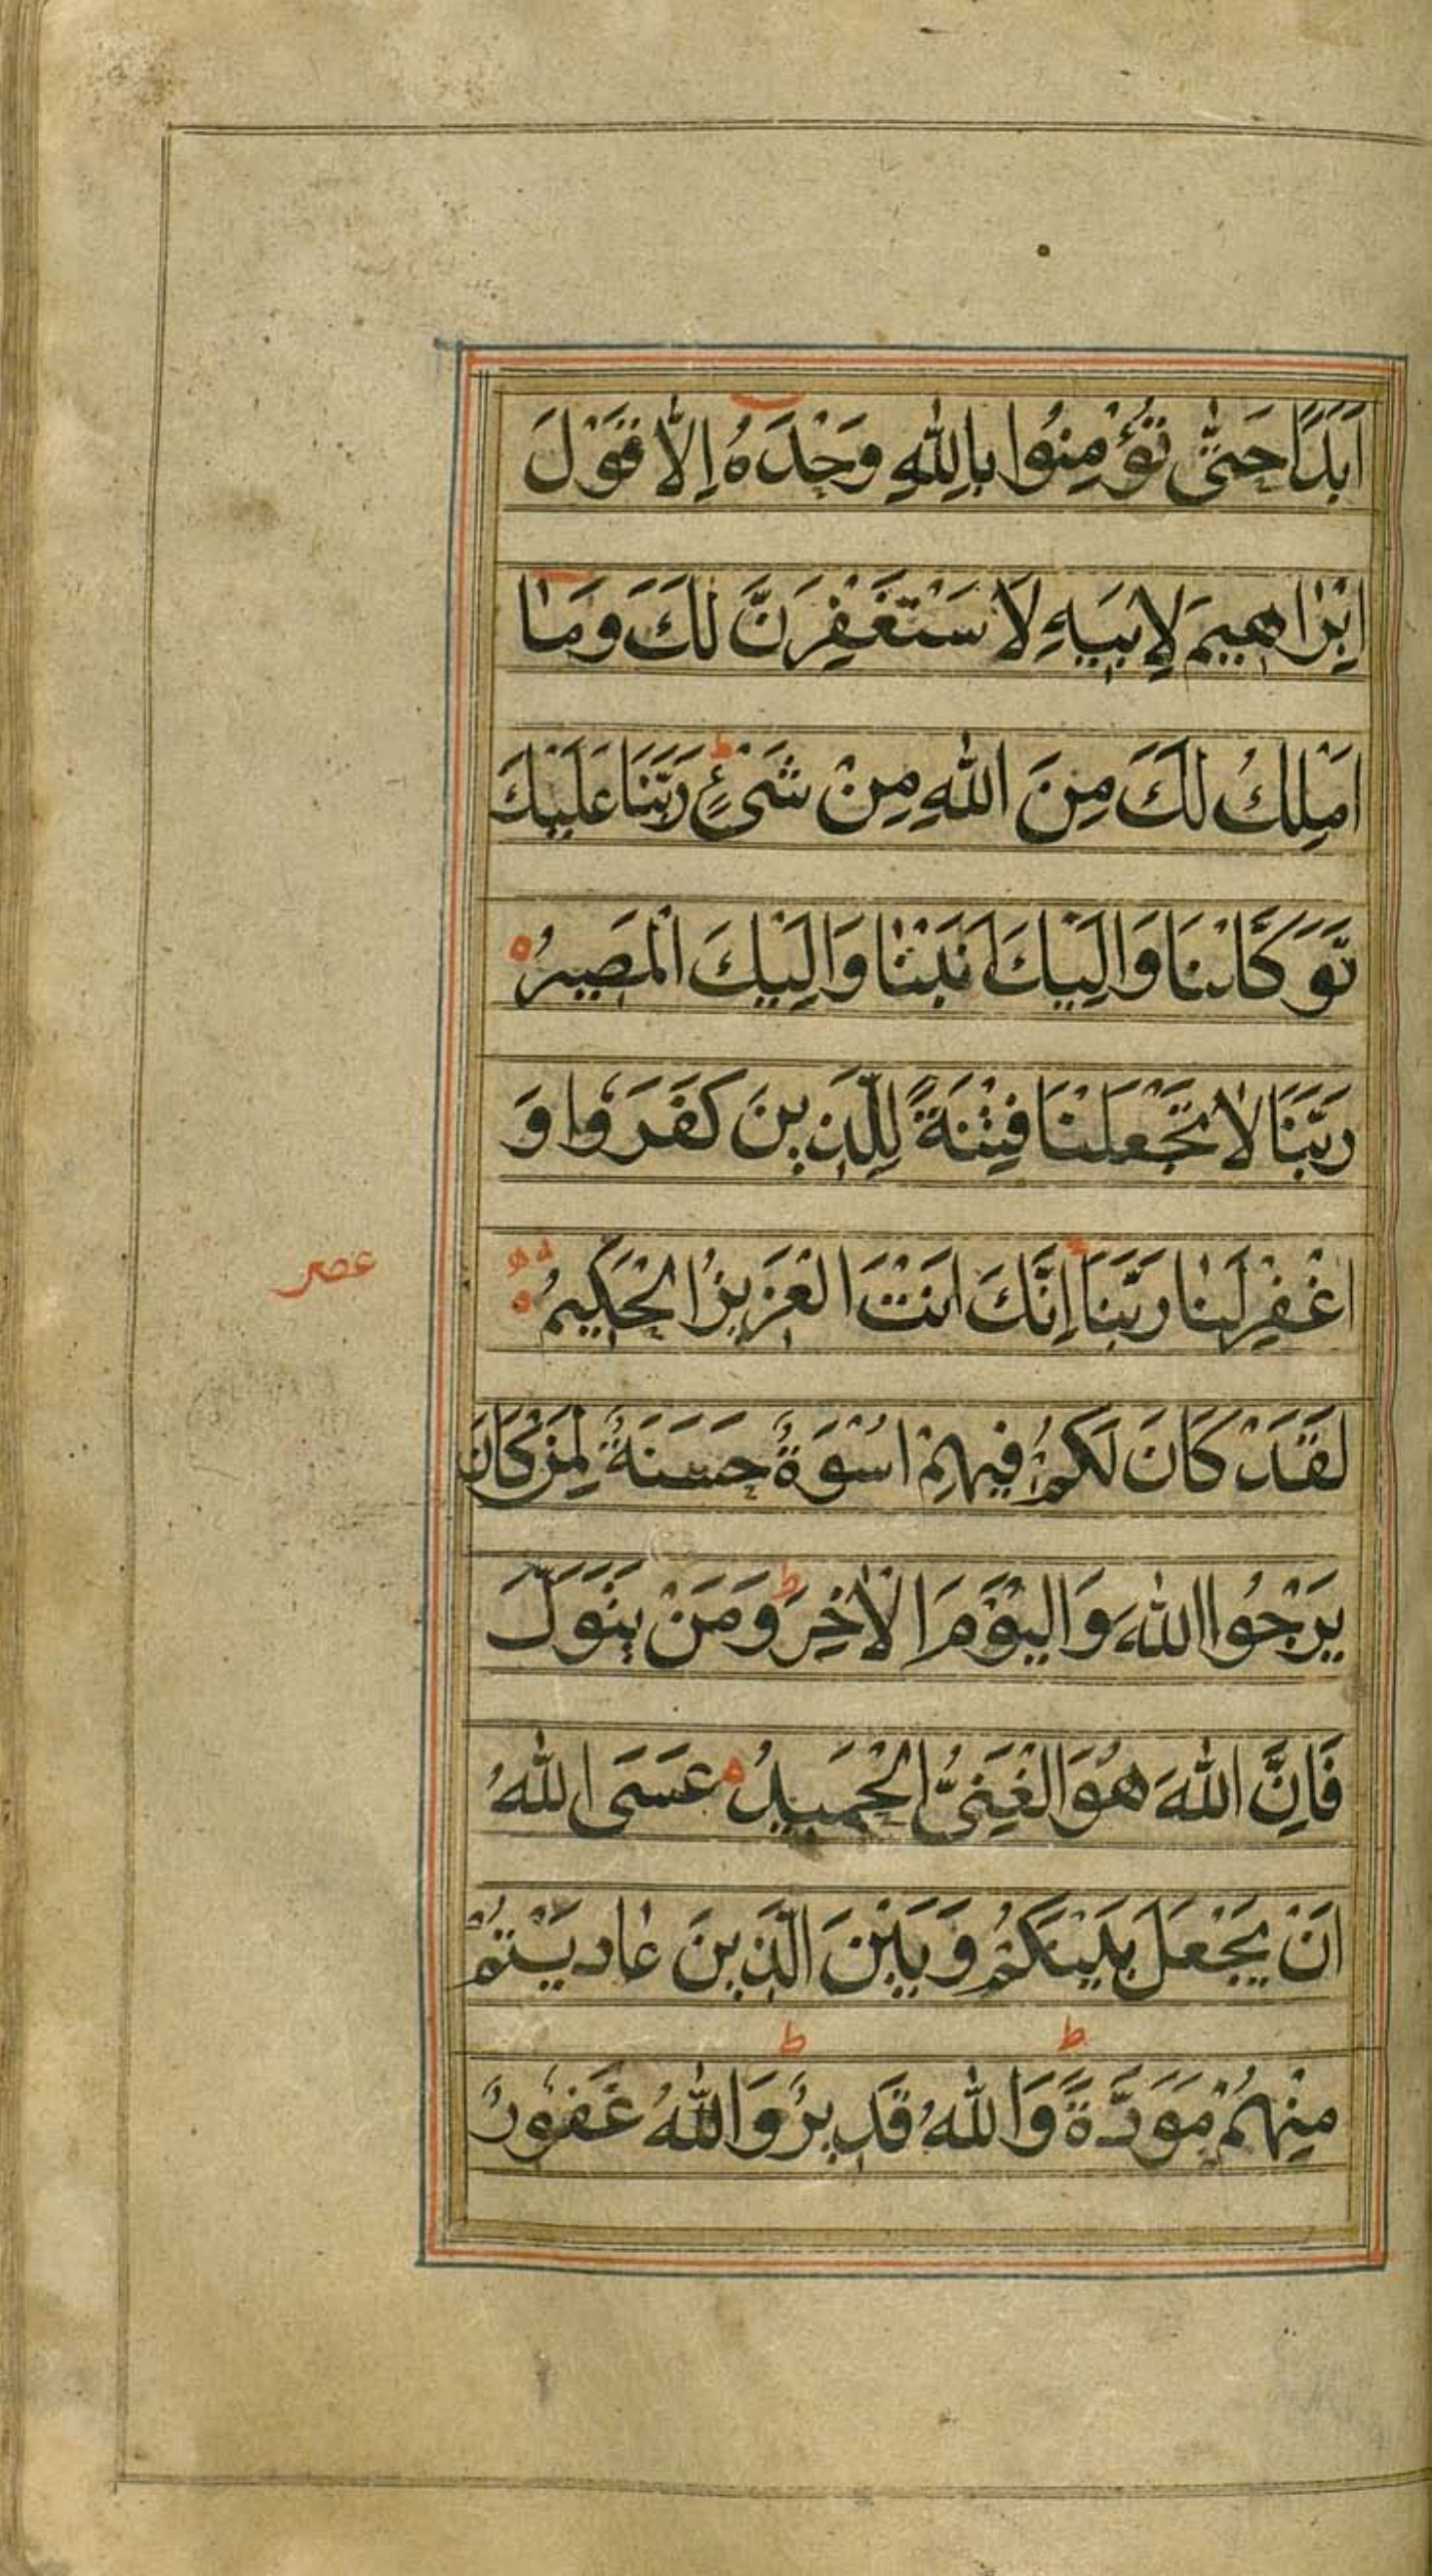 اَبَدًا حَتّٰى تُؤْمِنُوا بِاللّٰهِ وَحْدَهُ اِلَّا قَوْلَ
اِبْرٰاهِيمَ لِاَبِيهِ لَاَسْتَغْفِرَنَّ لَكَ وَمَا
اَمْلِكُ لَكَ مِنَ اللّٰهِ مِنْ شَىْءٍ ط رَبَّنَا عَلَيْكَ
تَوَكَّلْنَا وَاِلَيْكَ اَنَبْنَا وَاِلَيْكَ الْمَصِيرُ
رَبَّنَا لَا تَجْعَلْنَا فِتْنَةً لِلَّذِينَ كَفَرُوا وَ
اغْفِرْ لَنَا رَبَّنَا اِنَّكَ اَنْتَ الْعَزِيزُ الْحَكِيمُ
عصر
لَقَدْ كَانَ لَكُمْ فِيهِمْ اُسْوَةٌ حَسَنَةٌ لِمَنْ كَانَ
يَرْجُوا اللّٰهَ وَالْيَوْمَ الْاٰخِرَ ط وَمَنْ يَتَوَلَّ
فَاِنَّ اللّٰهَ هُوَ الْغَنِىُّ الْحَمِيدُ عَسَى اللّٰهُ
اَنْ يَجْعَلَ بَيْنَكُمْ وَبَيْنَ الَّذِينَ عَادَيْتُمْ
مِنْهُمْ مَوَدَّةً ط وَاللّٰهُ قَدِيرٌ ط وَاللّٰهُ غَفُورٌ